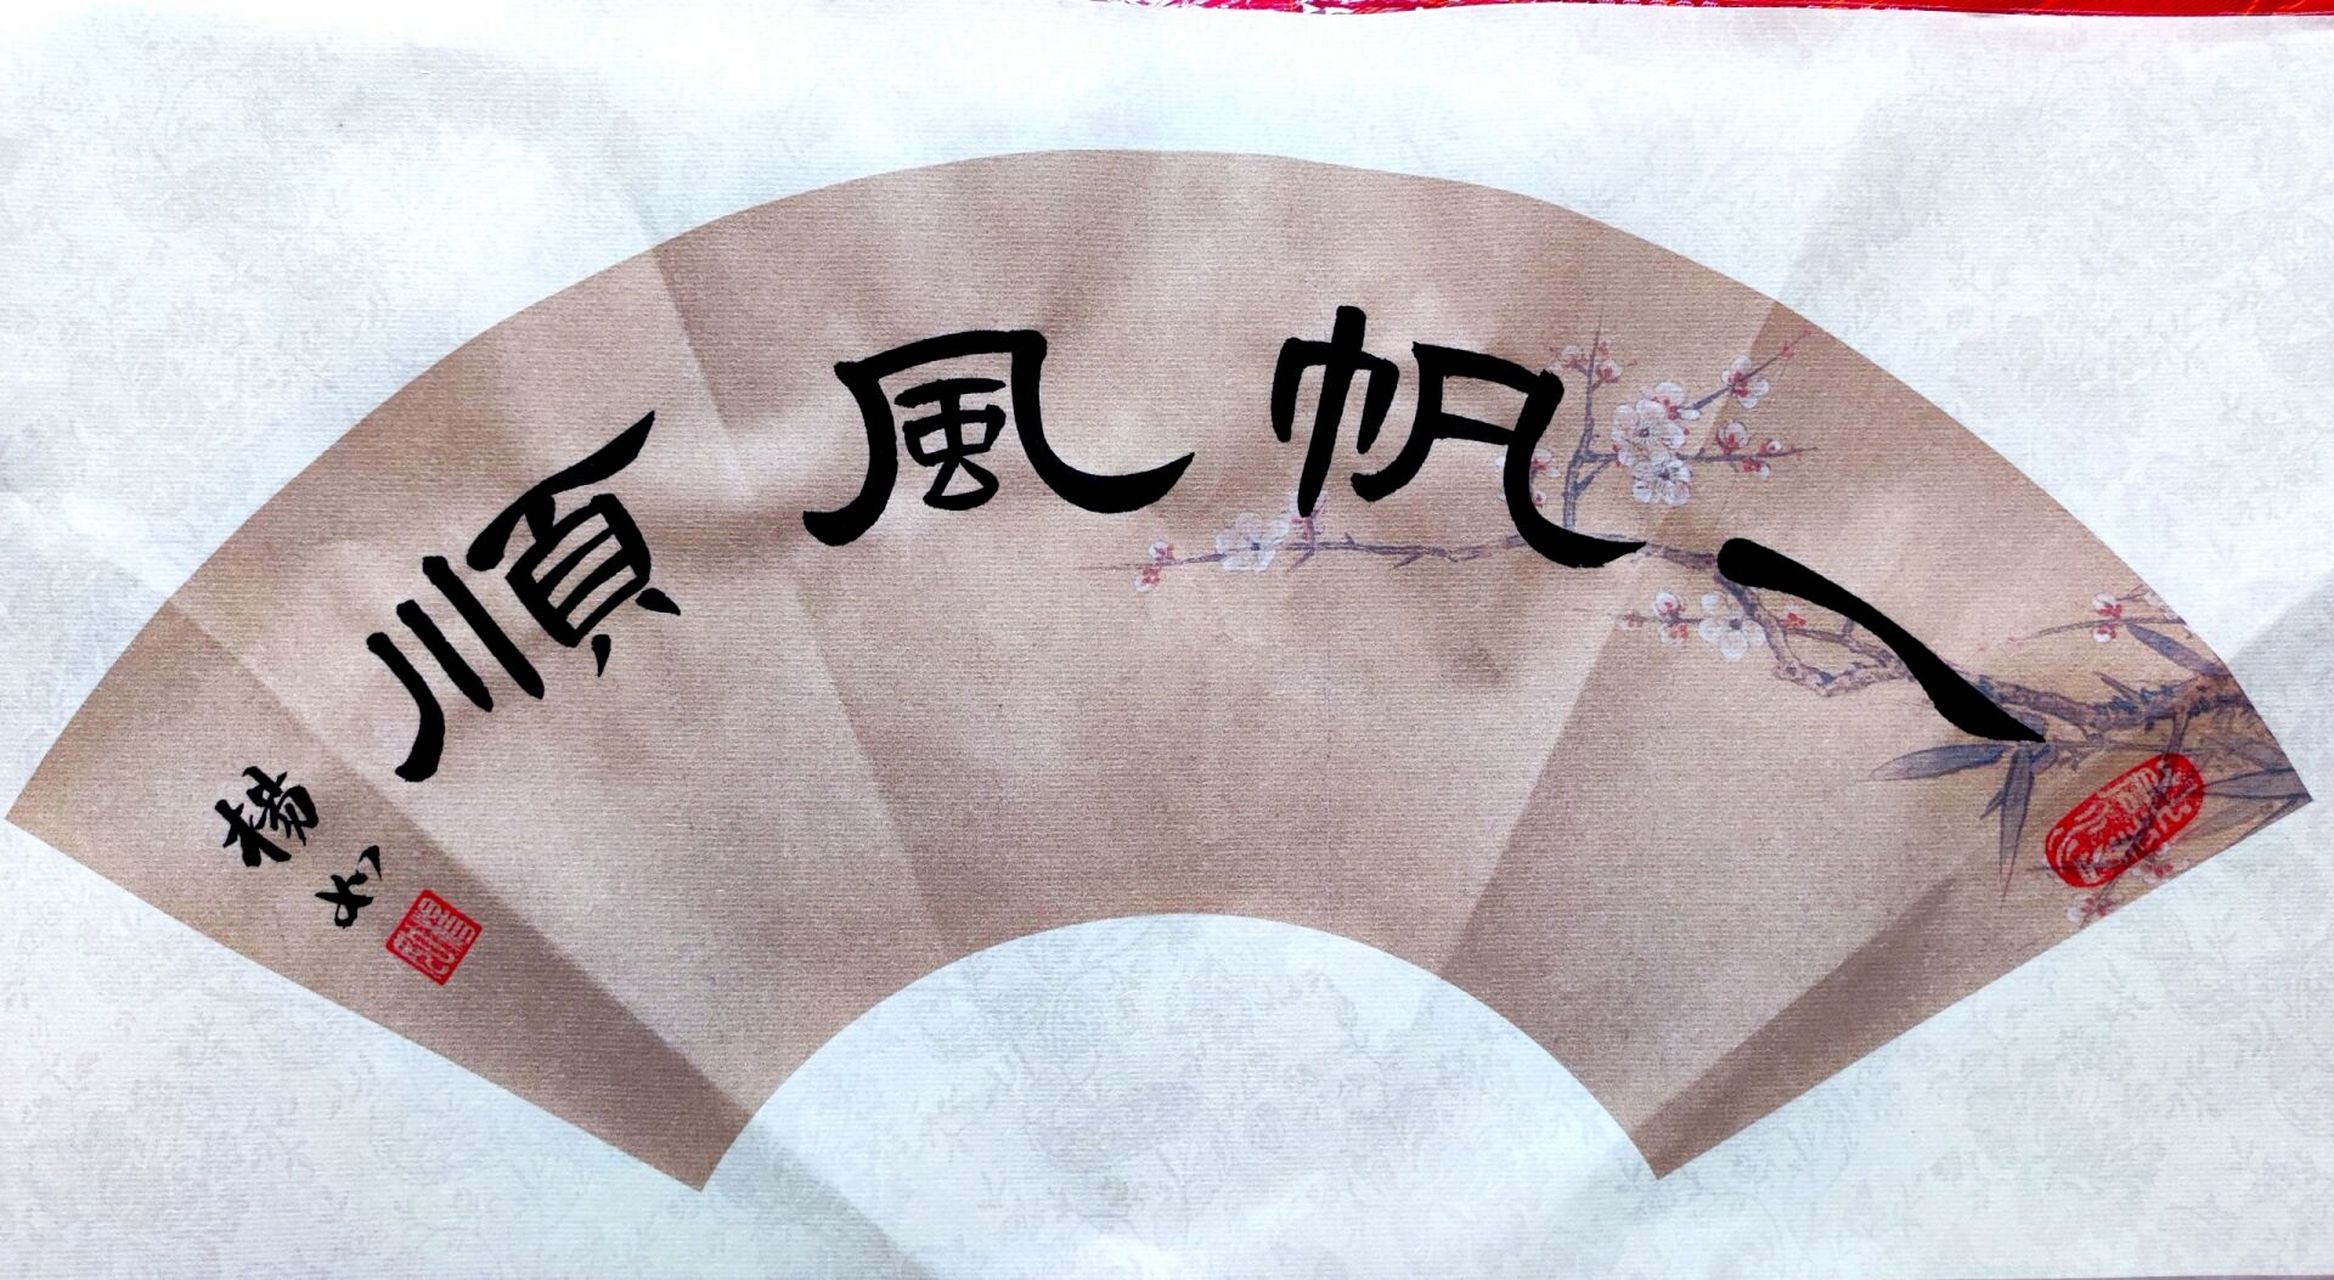 一帆風順
楊如